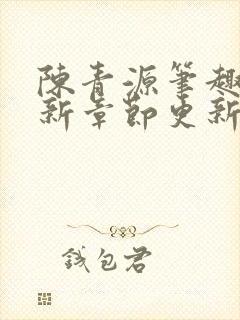 陳青源筆趣
新章節更新
錢包君